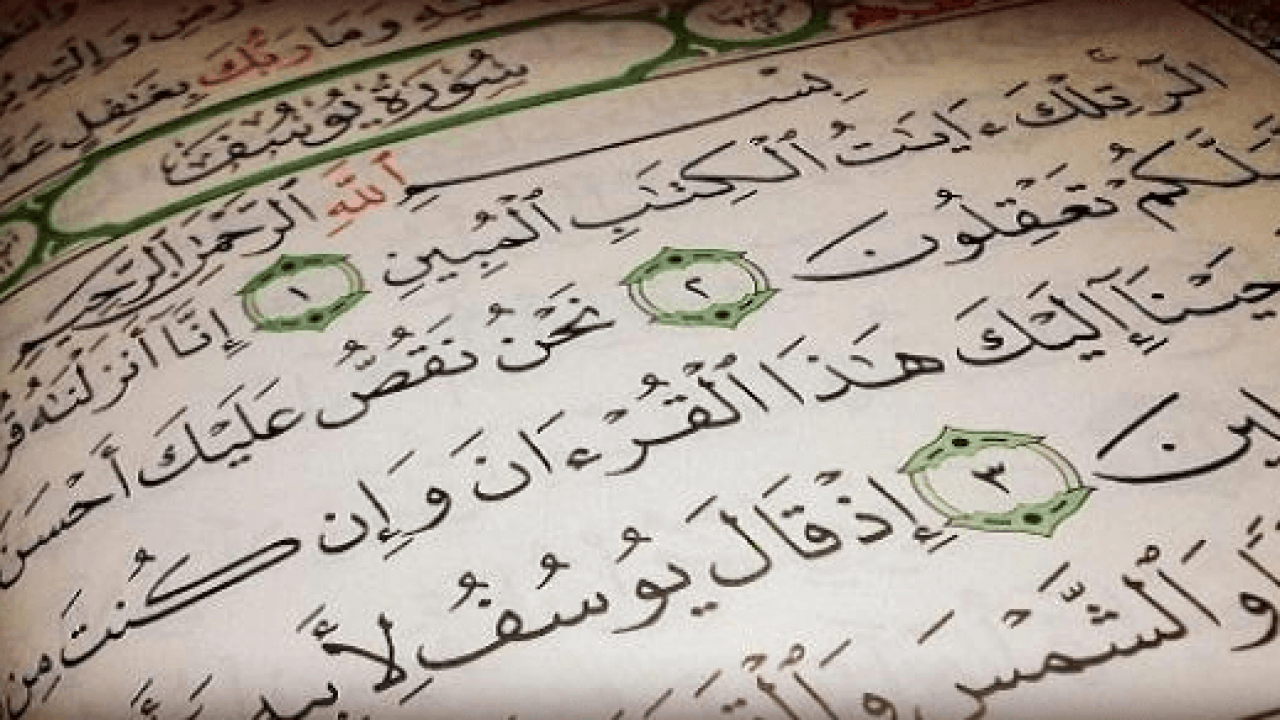 وَإِلَيْهِ
وَمَا رَبُّكَ بِغَٰفِلٍ
سُورَةُ يُوسُفَ
بِسْمِ ٱللَّهِ ٱلرَّحْمَٰنِ ٱلرَّحِيمِ
الٓر تِلْكَ ءَايَٰتُ ٱلْكِتَٰبِ ٱلْمُبِينِ ١ إِنَّآ أَنزَلْنَٰهُ
لَّعَلَّكُمْ تَعْقِلُونَ ٢ نَحْنُ نَقُصُّ عَلَيْكَ أَحْسَنَ
حَيْنَآ إِلَيْكَ هَٰذَا ٱلْقُرْءَانَ وَإِن كُنتَ مِن
لِينَ ٣ إِذْ قَالَ يُوسُفُ لِأَبِيهِ
وَٱلشَّمْسَ وَٱلْقَمَرَ